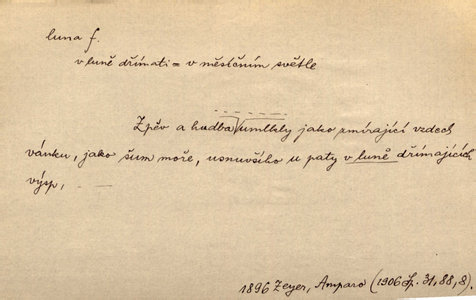 luna f.
v luně dřímati = v měsíčním světle
Zpěv a hudba umlkly jako zmírající vzdech
vánku, jako šum moře, usnuvšího u paty v luně dřímajících
výsp, —
1896 Zeyer, Amparo (1906 Sp. 31, 88, 8).